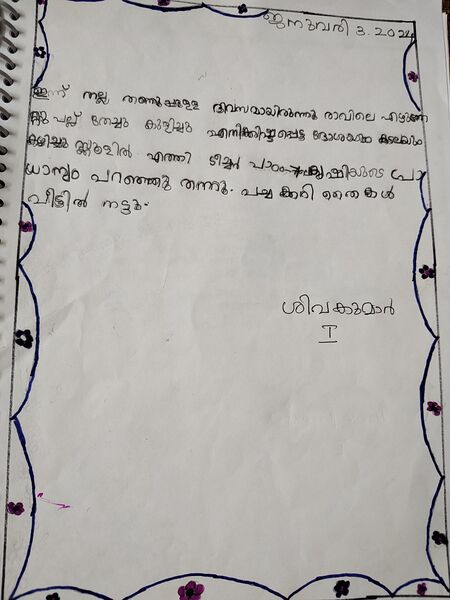 ജനുവരി 3.2024
ഇന്ന് നല്ല തണുപ്പുള്ള ദിവസമായിരുന്നു രാവിലെ എഴുന്നേ
റ്റു പല്ല് തേച്ചു കുളിച്ചു എനിക്കിഷ്ടപ്പെട്ട ദോശയും കടലയും
കഴിച്ചു സ്കൂളിൽ എത്തി ടീച്ചർ പാഠം കൃഷിയുടെ പ്രാ
ധാന്യം പറഞ്ഞു തന്നു. പച്ചക്കറി തൈകൾ
വീട്ടിൽ നട്ടു.
ശിവകുമാർ
I